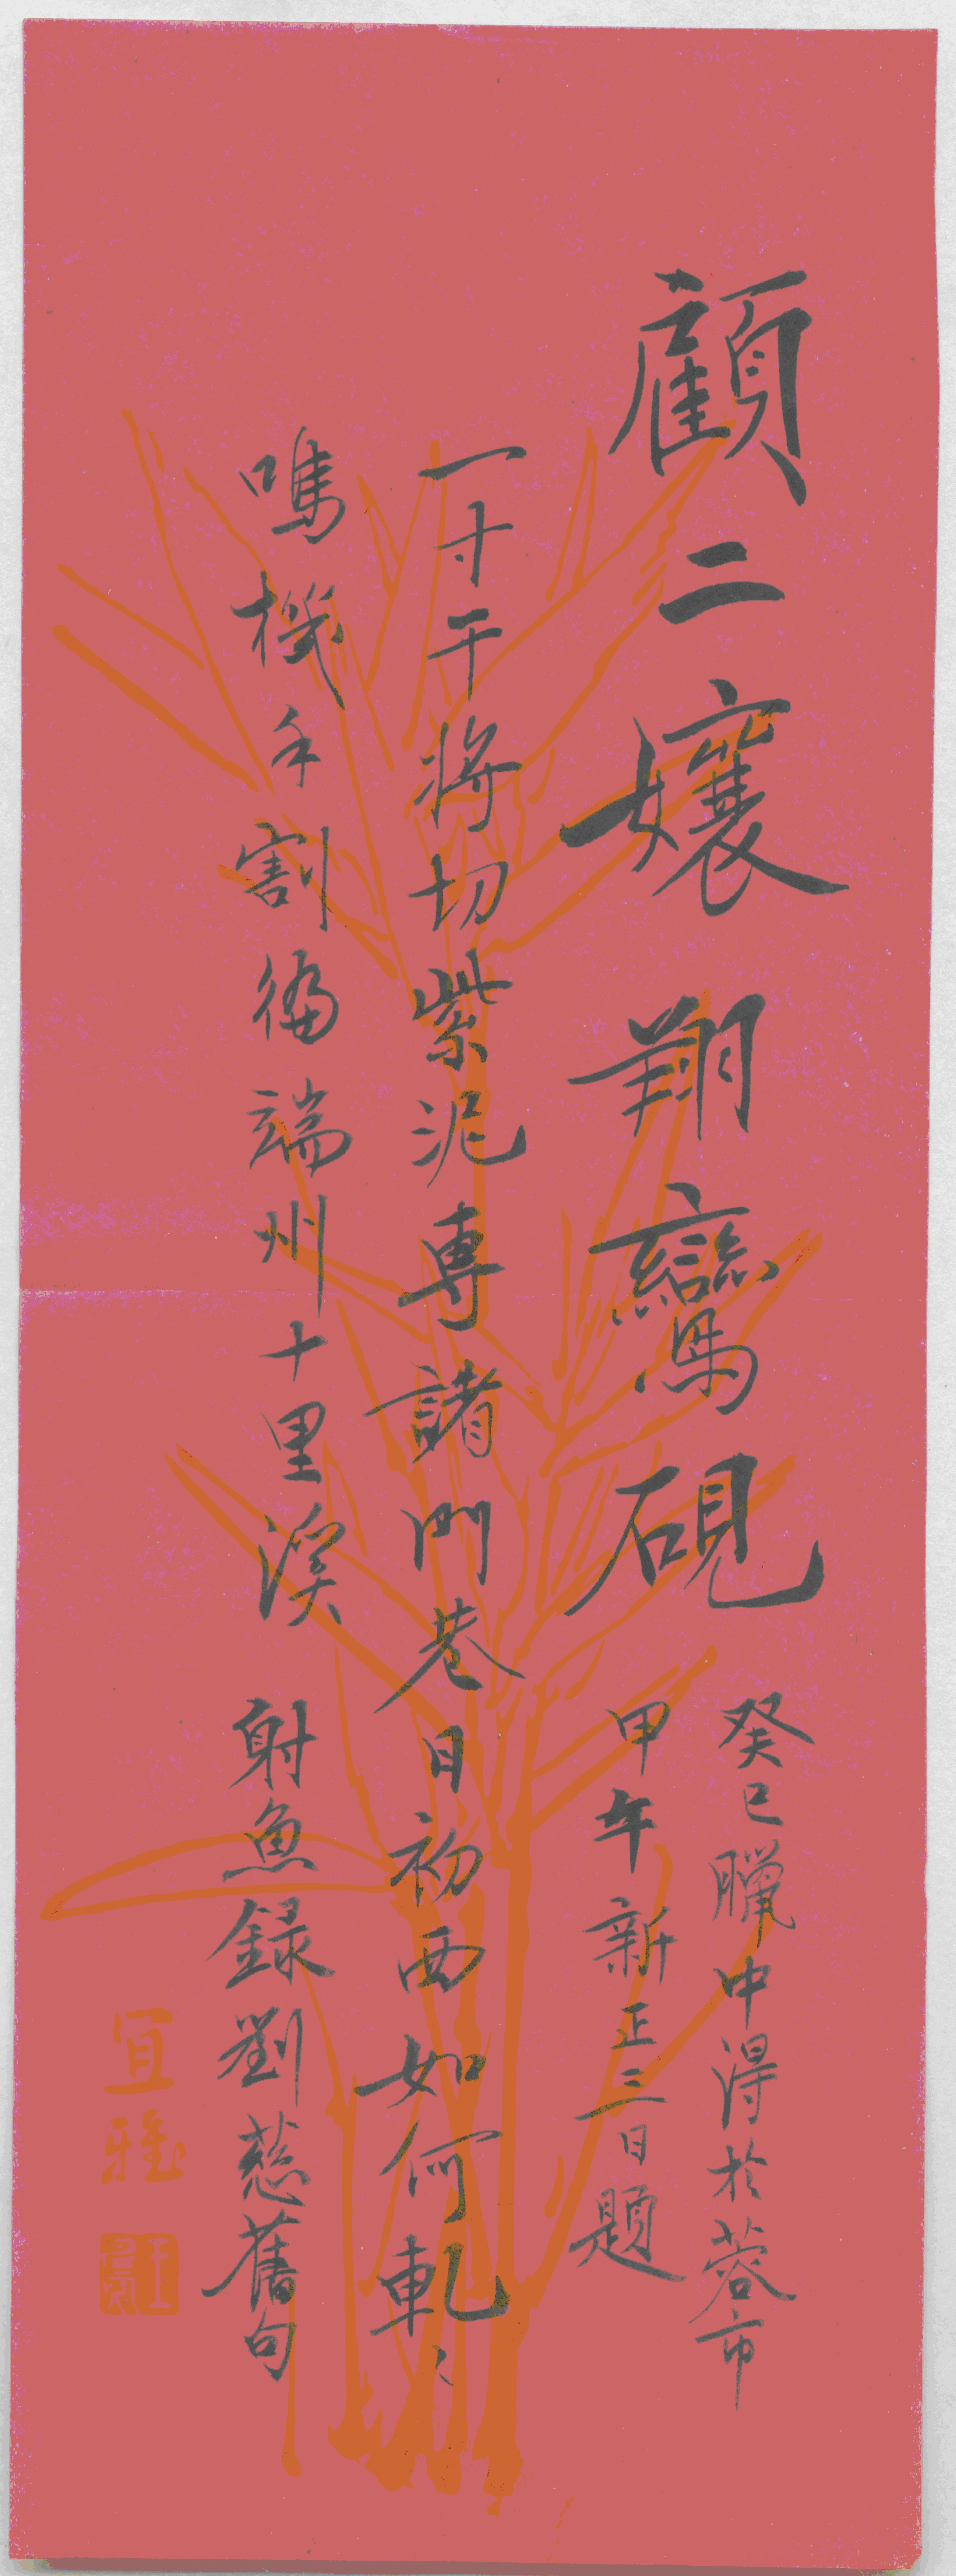 顧二孃翔鸞硯
癸巳臘中得於蓉市
甲午新正三日題
一寸干將切紫泥專諸門巷日初西如何軋〻
鳴機手割徧端州十里溪
射魚錄劉慈舊句
宜雅